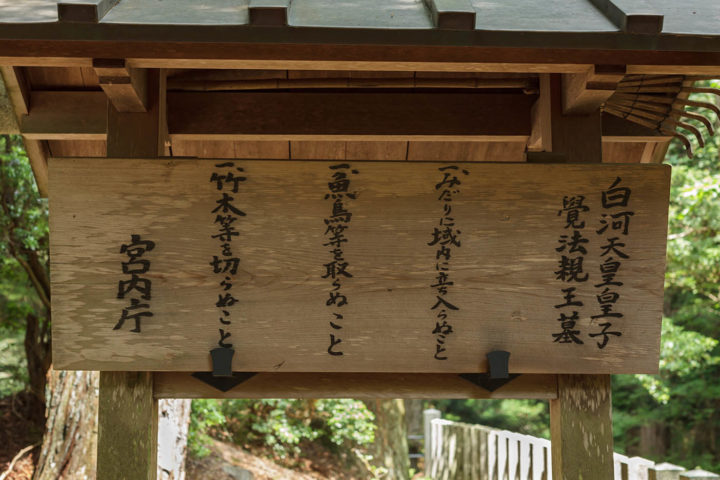 白河天皇皇子
覺法親王墓
一、みだりに域内に立ち入らぬこと
一、魚鳥等を取らぬこと
一、竹木等を切らぬこと
宮内庁